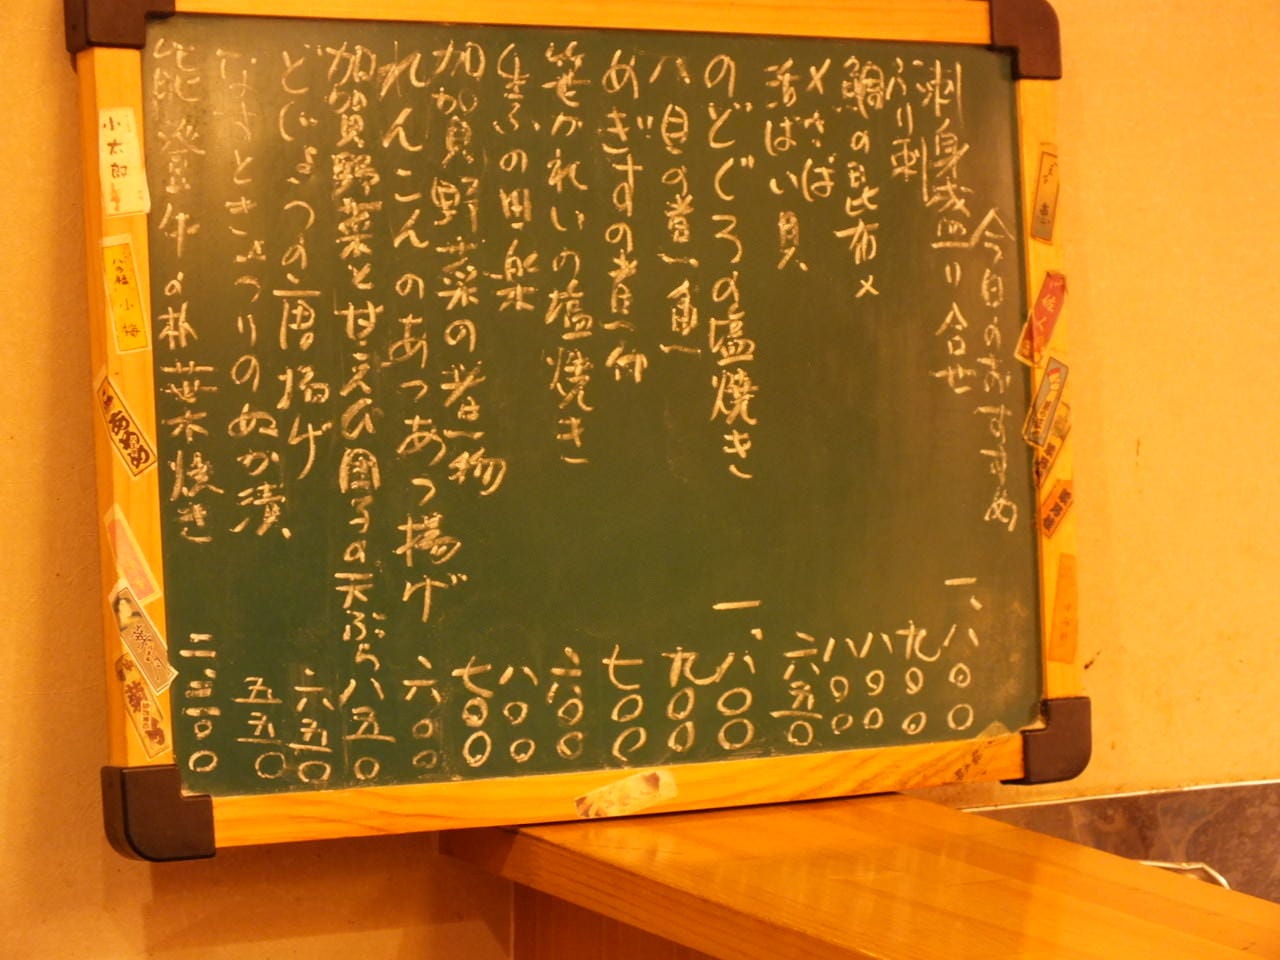 今日のおすすめ
刺身盛り合せ 一、八〇〇
ぶり刺 九〇〇
鯛の昆布〆 八〇〇
〆さば 八〇〇
活ばい貝 六五〇
のどぐろの塩焼き 一、八〇〇
八目の煮魚 九〇〇
めぎすの煮付 七〇〇
笹がれいの塩焼き 六〇〇
生ふの田楽 八〇〇
加賀野菜の煮物 七〇〇
れんこんのあつあつ揚げ 六〇〇
加賀野菜と甘えび団子の天ぷら 八五〇
どじょうの唐揚げ 六五〇
なすときゅうりのぬか漬 五五〇
能登牛の朴葉木焼き 二、三〇〇
小太郎
小梅